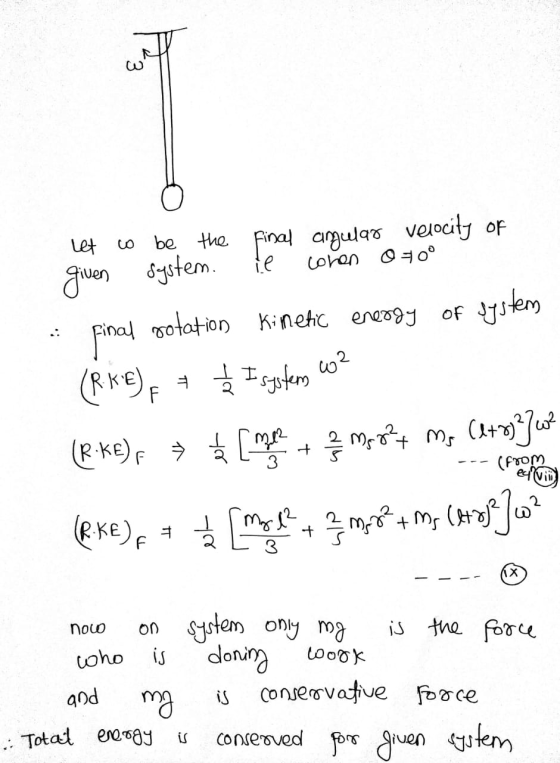 ω
Let ω be the final angular velocity of
given system. i.e when θ ⇒ 0°
∴ final rotation kinetic energy of system
(R.K.E)F ⇒ 1/2 I system ω²
(R.KE)F ⇒ 1/2 [mrl²/3 + 2/5 msr² + ms (l+r)²] ω²
--- (from eqⁿ (viii)
(R.KE)F ⇒ 1/2 [mrl²/3 + 2/5 msr² + ms (l+r)²] ω²
---- (ix)
now on system only mg is the force
who is doning woork
and mg is conservative force
∴ Total energy is conserved for given system